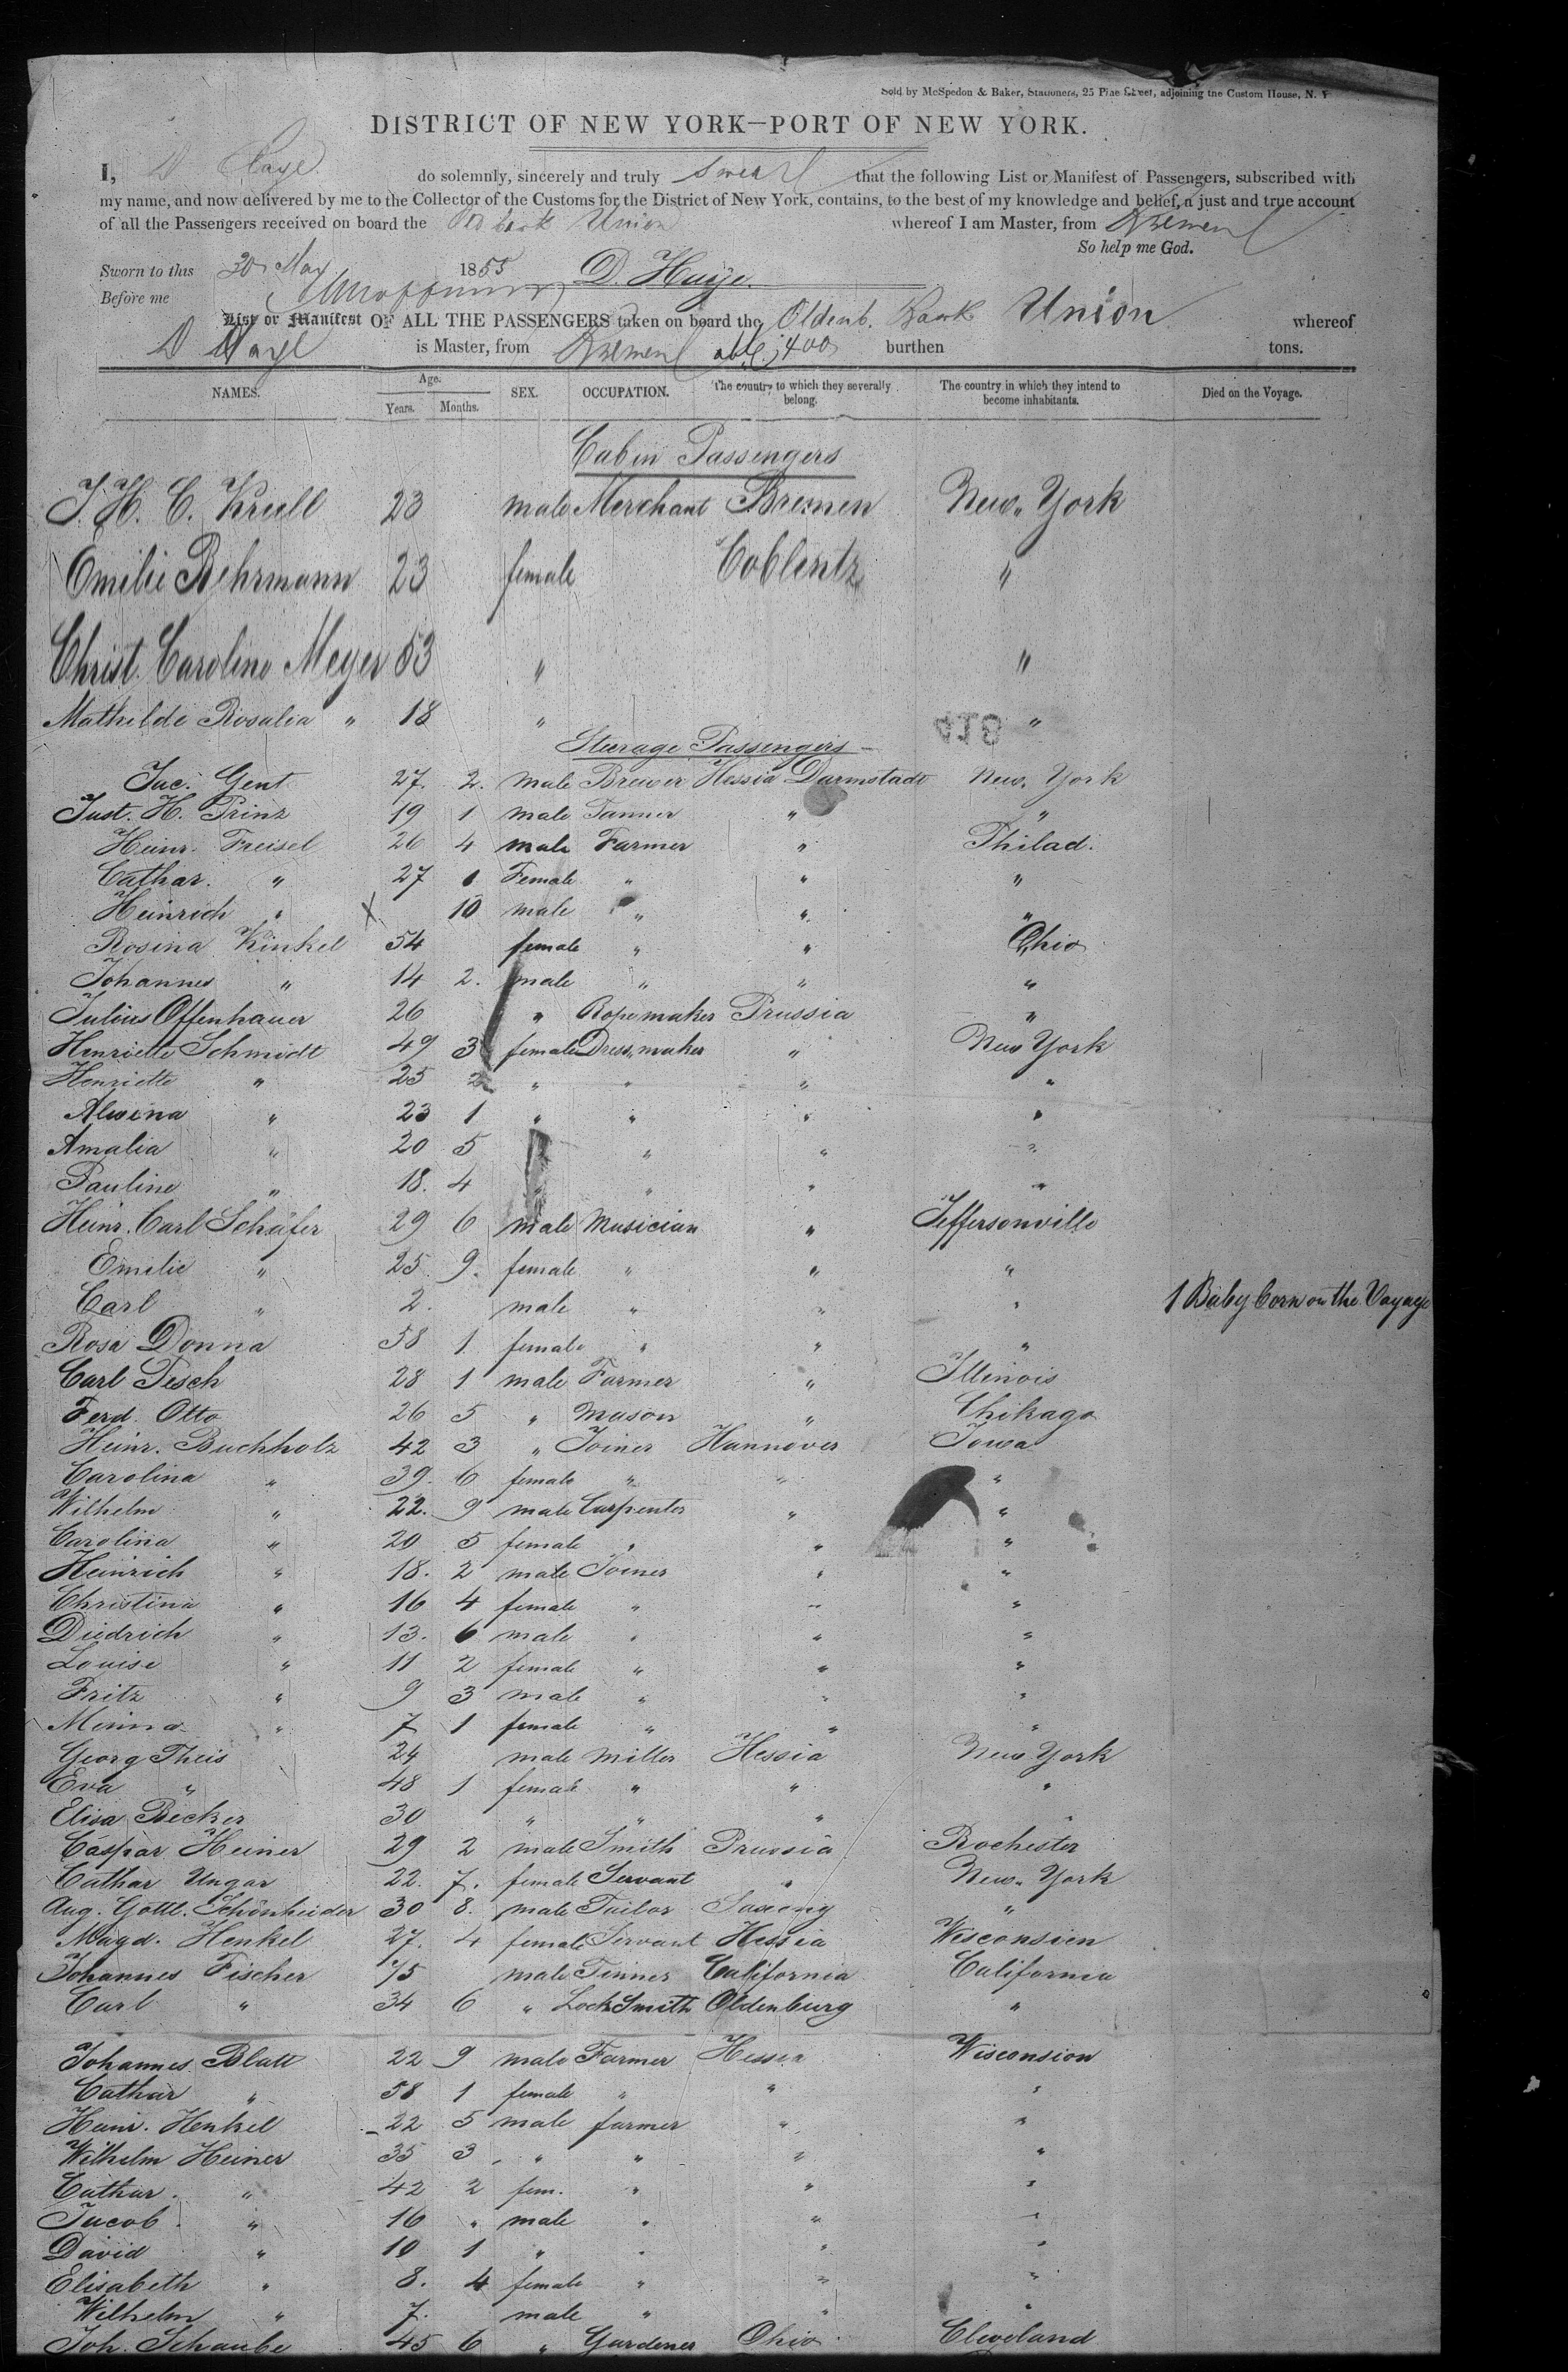 Sold by McSpedon & Baker, Stationers, 25 Pine Street, adjoining the Custom House, N. Y
DISTRICT OF NEW YORK—PORT OF NEW YORK.
I, D Haye do solemnly, sincerely and truly swear that the following List or Manifest of Passengers, subscribed with
my name, and now delivered by me to the Collector of the Customs for the District of New York, contains, to the best of my knowledge and belief, a just and true account
of all the Passengers received on board the Old bark Union whereof I am Master, from Bremen
So help me God.
Sworn to this 30 May 1855 D. Haye.
Before me
List or Manifest OF ALL THE PASSENGERS taken on board the Oldenb. Bark Union whereof
D Haye is Master, from Bremen abt. 400 burthen tons.
NAMES. Age. Years. Months. SEX. OCCUPATION. The country to which they severally belong. The country in which they intend to become inhabitants. Died on the Voyage.
Cabin Passengers
J. H. C. Krull 23 male Merchant Bremen New York
Emilie Behrmann 23 female Coblentz "
Christ. Caroline Meyer 53 " "
Mathilde Rosalia " 18 " "
418
Steerage Passengers
Jac. Gent 27. 2. male Brewer Hessia Darmstadt New York
Just. H. Prinz 19 1 male Tanner " "
Heinr. Freisel 26 4 male Farmer " Philad.
Cathar. " 27 1 Female " " "
Heinrich " X 10 male " " "
Rosina Kinkel 54 female " " Ohio
Johannes " 14 2. male " " "
Julius Offenhauer 26 " Ropemaker Prussia "
Henriette Schmidt 49 3 female Dressmaker " New York
Henriette " 25 2 " " " "
Alwina " 23 1 " " " "
Amalia " 20 5 " " "
Pauline " 18. 4 " " " "
Heinr. Carl Schäfer 29 6 male Musician " Jeffersonville
Emilie " 25. 9. female " " "
Carl " 2. male " " " 1 Baby born on the Voyage
Rosa Donna 58 1. female " " "
Carl Pesch 28 1 male Farmer " Illinois
Ferd. Otto 26 5 " Mason " Chikago
Heinr. Buchholz 42 3 " Joiner Hannover Iowa
Carolina " 39. 6 female " " "
Wilhelm " 22. 9 male Carpenter " "
Carolina " 20 5 female " " "
Heinrich " 18. 2 male Joiner " "
Christina " 16 4 female " " "
Diedrich " 13. 6 male " " "
Louise " 11 2 female " " "
Fritz " 9 3 male " " "
Minna " 7 1 female " " "
Georg Theis 24 male Miller Hessia New York
Eva " 48 1 female " " "
Elisa Becker 30 " " " "
Caspar Heiner 29 2 male Smith Prussia Rochester
Cathar Ungar 22. 7. female Servant " New York
Aug. Gottl. Schönheider 30 8. male Tailor Saxeny "
Magd. Henkel 27. 4 female Servant Hessia Wisconsien
Johannes Fischer 75 male Tinner California California
Carl " 34 6 " LockSmith Oldenburg "
Johannes Blatt 22 9 male Farmer Hessen Wisconsion
Cathar " 58 1 female " " "
Heinr. Henkel 22 5 male farmer " "
Wilhelm Heiner 35 3 " " " "
Cathar. " 42 2 fem. " " "
Jacob. " 16 " male " " "
David " 10 1 " " " "
Elisabeth " 8. 4 female " " "
Wilhelm " 7. male " " "
Joh. Schaube 45 6 " Gardener Ohio Cleveland